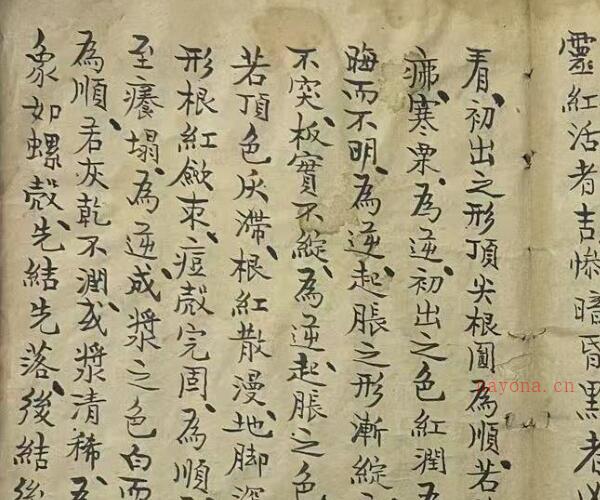 靈紅活者吉慘暗昏黑者
看、初出之形頂尖根圓為順、若
痱、寒粟、為逆、初出之色紅潤
晦而不明、為逆、起脹之形漸綻
不突、板實不綻、為逆、起脹之色
若頂色灰滯、根紅散漫、地脚
形根紅斂束、痘殼完固、為順
至癢塌、為逆、成漿之色白而
為順、若灰乾不潤、或漿清稀、
象如螺殼、先結先落、後結後
nayona.cn